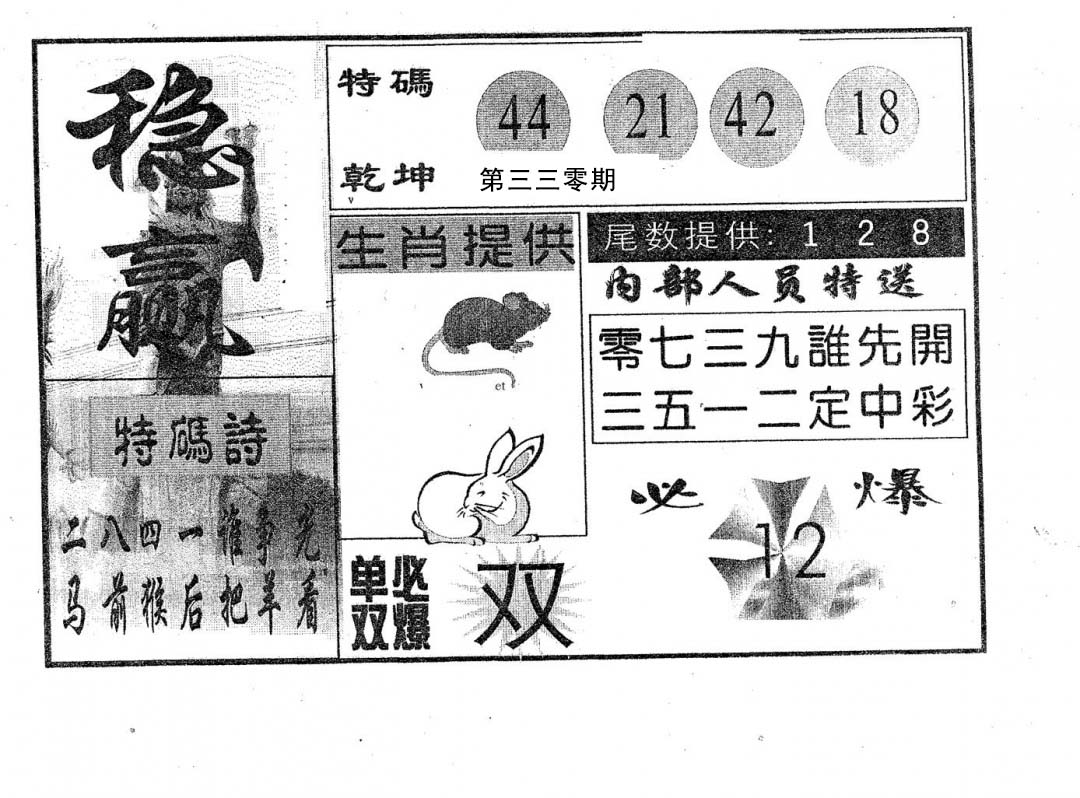 稳
赢
特碼
44 21 42 18
乾坤
第三三零期
生肖提供
尾数提供: 1 2 8
内部人员特送
零七三九誰先開
三五一二定中彩
et
特碼詩
二八四一谁争先
马前猴后把羊看
必爆
12
单必
双爆
双